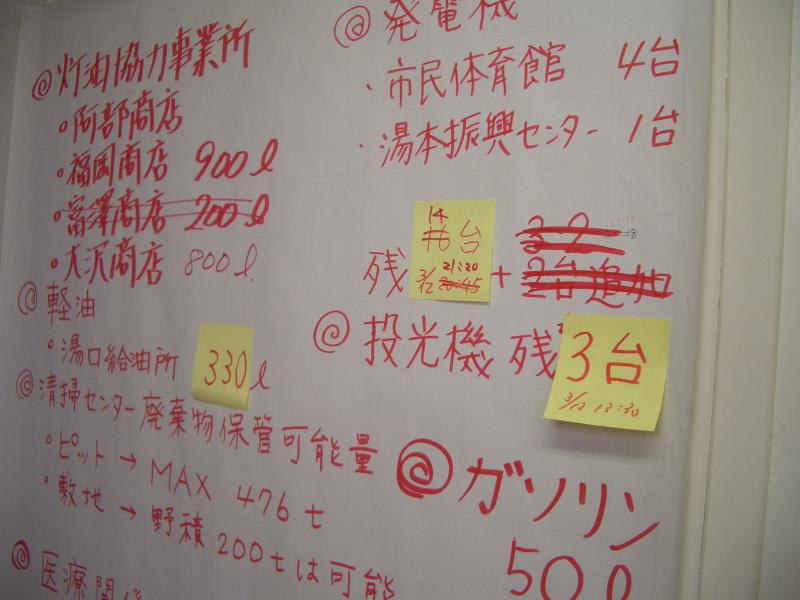 ◎灯油協力事業所
・阿部商店
・福岡商店 900ℓ
・富澤商店 200ℓ
・大沢商店 800ℓ
◎軽油
・湯口給油所 330ℓ
◎清掃センター廃棄物保管可能量
・ピット→MAX 476t
・敷地→野積200tは可能
◎医療関係
◎発電機
・市民体育館 4台
・湯本振興センター 1台
残 14台 3/12 21:20 + 2台追加
◎投光機 残 3台
3/12 13:30
◎ガソリン
50ℓ